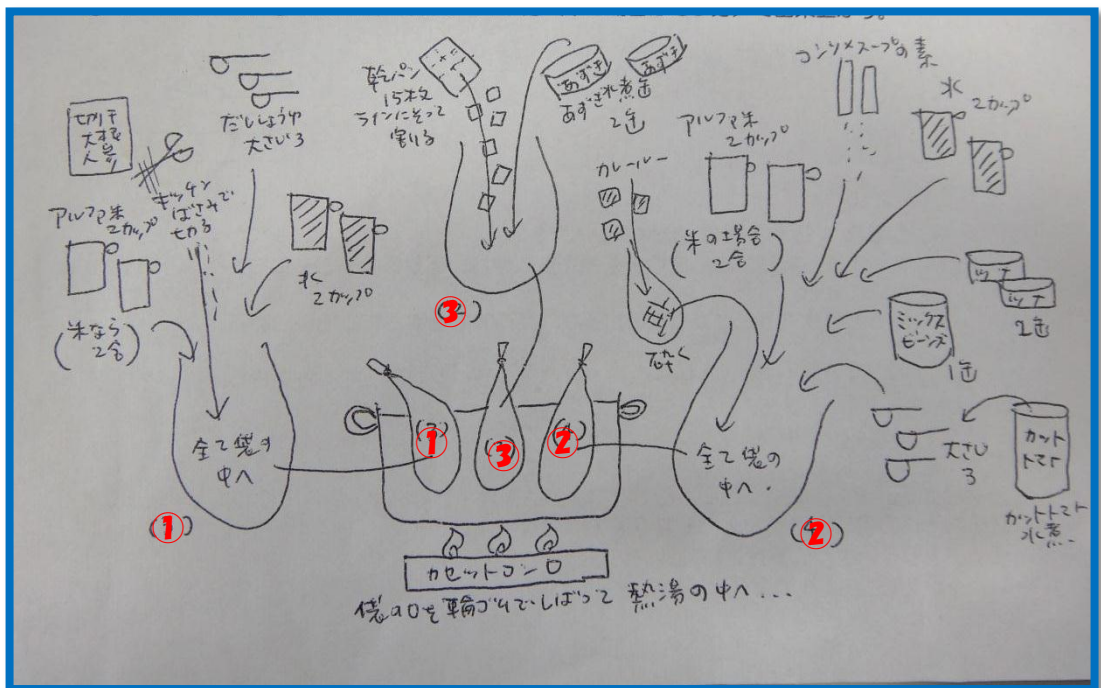 切干
大根
人参
キッチン
ばさみで
切る
アルファ米
2カップ
(米なら
2合)
だししょうゆ
大さじ3
水
2カップ
全て袋の
中へ
①
乾パン
15枚
ラインにそって
割る
あずき
あずき
あずき水煮缶
2缶
③
カレールー
砕く
アルファ米
2カップ
(米の場合
2合)
コンソメスープの素
水
2カップ
ツナ
ツナ
2缶
ミックス
ビーンズ
1缶
大さじ
3
カット
トマト
カットトマト
水煮
全て袋の
中へ.
②
①
③
②
カセットコンロ
袋の口を輪ゴムでしばって 熱湯の中へ...